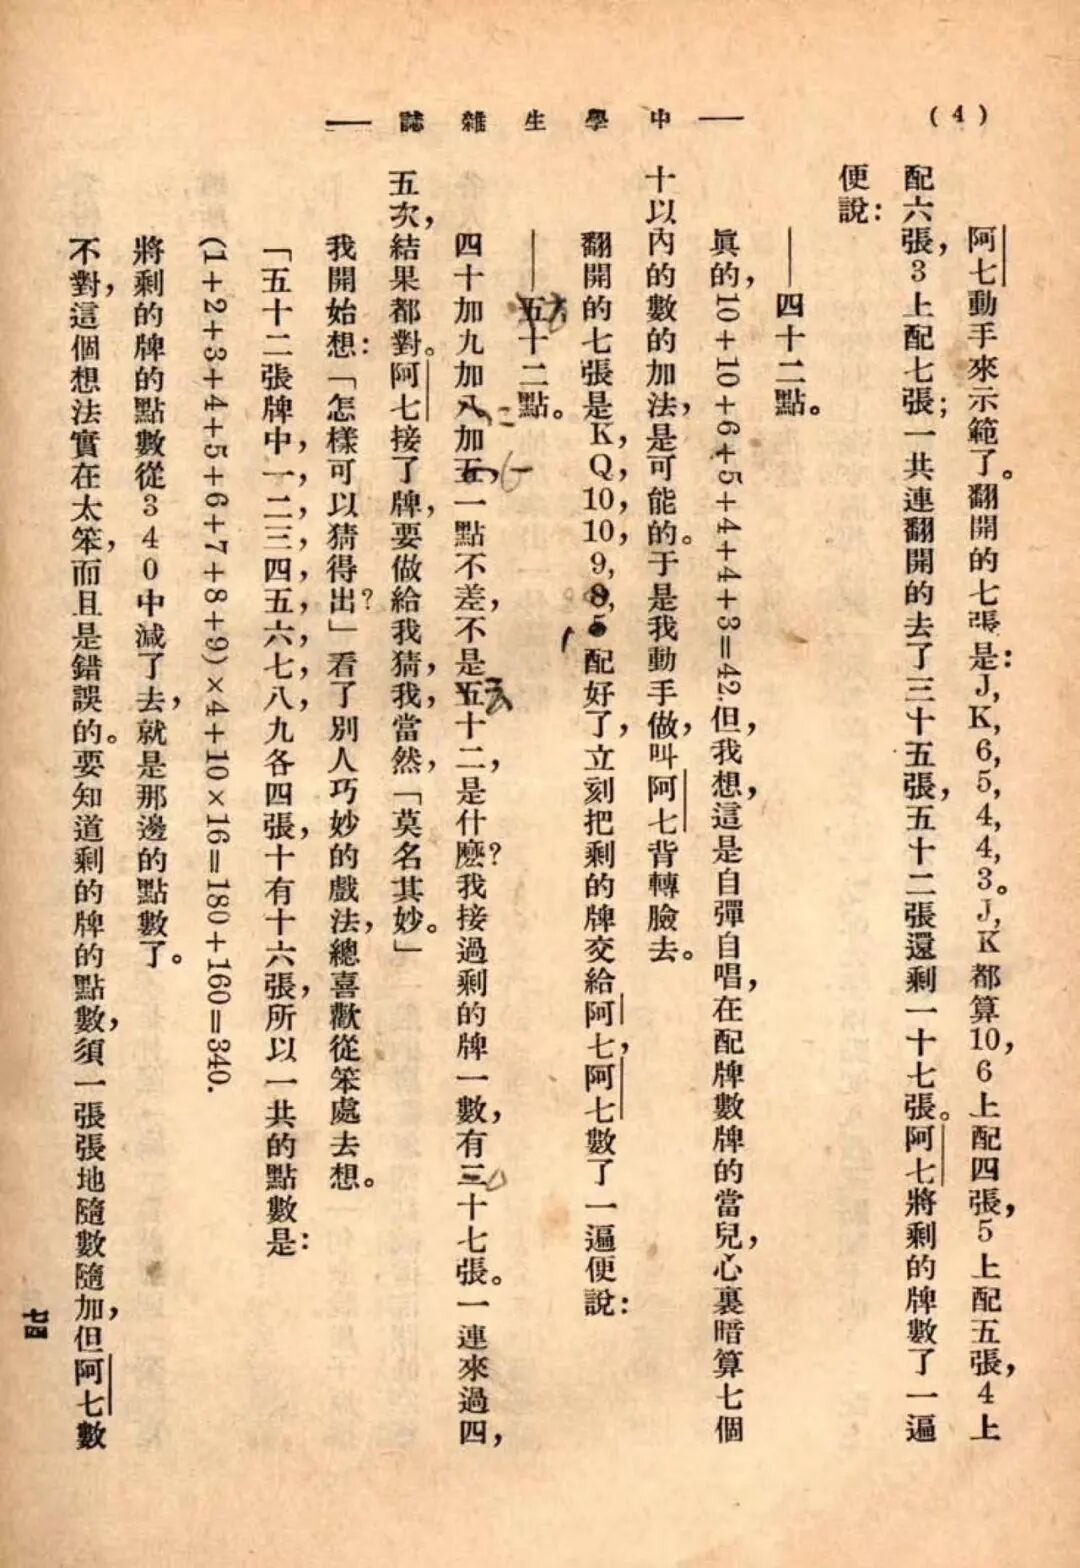 (4)
—— 中學生雜誌 ——
阿七動手來示範了。翻開的七張是：J, K, 6, 5, 4, 4, 3。J, K 都算10，6上配四張，5上配五張，4上
配六張，3上配七張；一共連翻開的去了三十五張，五十二張還剩一十七張。阿七將剩的牌數了一遍
便說：
——四十二點。
眞的，10＋10＋6＋5＋4＋4＋3＝42.但我想，這是自彈自唱，在配牌數牌的當兒，心裏暗算七個
十以內的數的加法，是可能的。于是我動手做，叫阿七背轉臉去。
翻開的七張是K, Q, 10, 10, 9, 8, 5，配好了，立刻把剩的牌交給阿七，阿七數了一遍便說：
——五十二點。
四十加九加八加五，一點不差，不是五十二，是什麽？我接過剩的牌一數，有三十七張。一連來過四，
五次，結果都對。阿七接了牌，要做給我猜，我，當然，「莫名其妙。」
我開始想：「怎樣可以猜得出？」看了別人巧妙的戲法，總喜歡從笨處去想。
「五十二張牌中，一，二，三，四，五，六，七，八，九各四張，十有十六張，所以一共的點數是：
(1＋2＋3＋4＋5＋6＋7＋8＋9)×4＋10×16＝180＋160＝340.
將剩的牌的點數從340中減了去，就是那邊的點數了。
不對，這個想法實在太笨，而且是錯誤的。要知道剩的牌的點數，須一張張地隨數隨加，但阿七數
七四